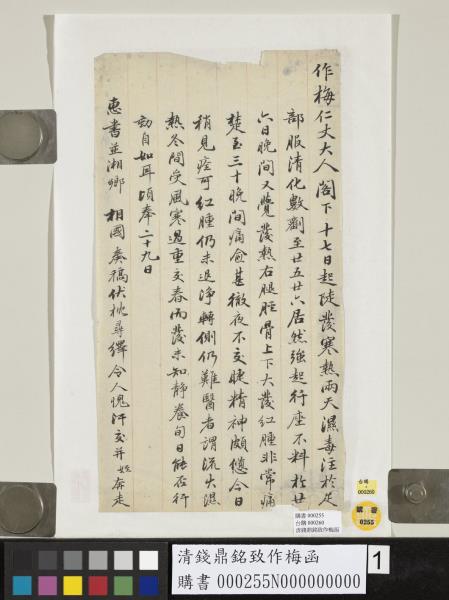 作梅仁丈大人閣下十七日起陡發寒熱兩天濕毒注於足
部服清化數劑至廿五廿六居然強起行座不料於廿
六日晚間又覺發熱右腿脛骨上下大發紅腫非常痛
楚至三十晚間痛愈甚徹夜不交睫精神頗憊今日
稍見痊可紅腫仍未退淨轉側仍難醫者謂流火濕
熱冬間受風寒過重交春而發未知靜養旬日能否行
動自如耳頃奉二十九日
惠書並湘鄉相國奏稿伏枕尋繹令人愧汗交并姪奔走
台購
000260
購書
0255
購書 000255
台購 000260
清錢鼎銘致作梅函
清錢鼎銘致作梅函
購書 000255N000000000
1